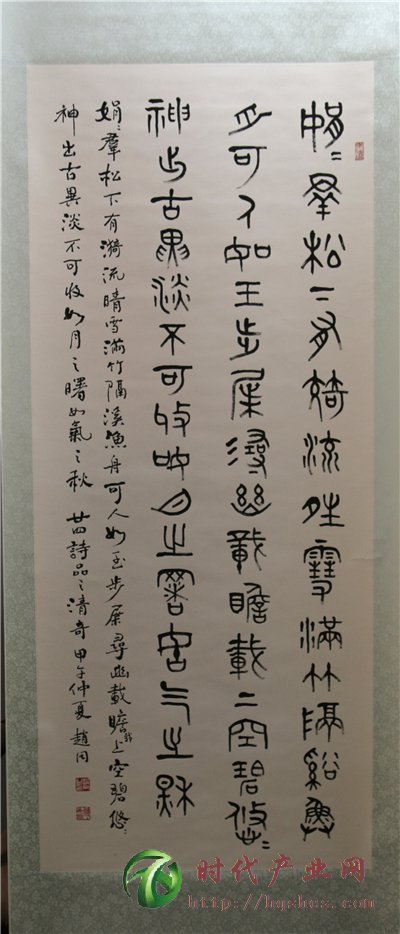 娟〻羣松下有漪流晴雪滿竹隔谿魚
舟可人如玉步屧尋幽載瞻載上空碧悠〻
神出古異淡不可收如月之曙如气之秋
娟〻羣松下有漪流晴雪滿竹隔溪漁舟可人如玉步屧尋幽載瞻載上空碧悠〻
神出古異淡不可收如月之曙如氣之秋 廿四詩品之清奇 甲午仲夏趙同
时代产业网